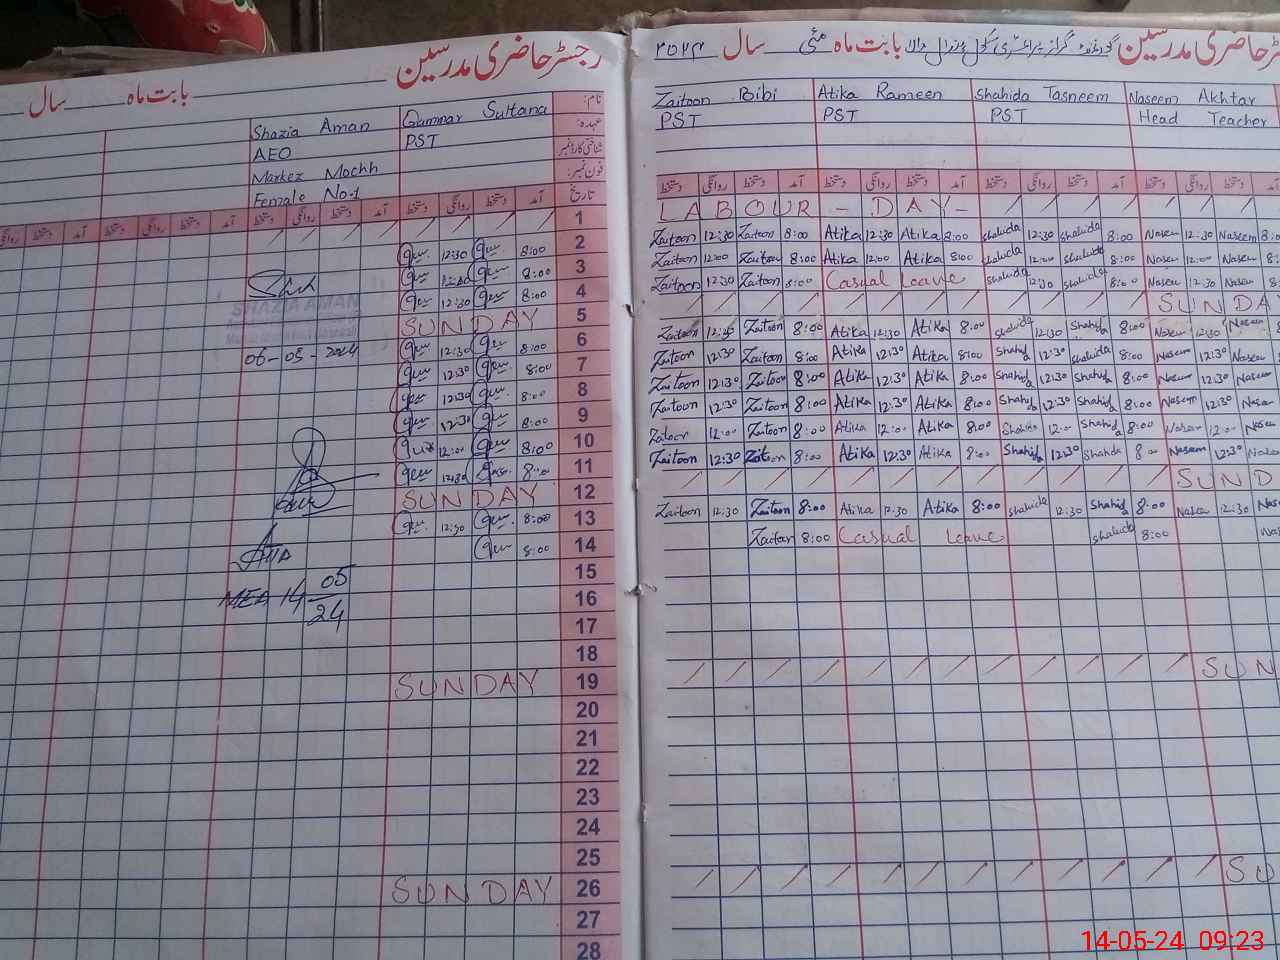 رجسٹر حاضری مدرسین
بابت ماہ سال
نام: Gamnar Sultana Shazia Aman
عہدہ: PST AEO
شناختی کارڈ نمبر Markez Mochh
فون نمبر: Female No-1
تاریخ آمد دستخط روانگی دستخط آمد دستخط روانگی دستخط آمد دستخط روانگی دستخط آمد دستخط روانگی
1
2 8:00 12:30
3 8:00
4 8:00 12:30
5 SUNDAY
6 8:00 12:30 06-05-2024
7 8:00 12:30
8 8:00 12:30
9 8:00 12:30
10 8:00 12:00
11 8:00 12:30
12 SUNDAY
13 8:00 12:30
14 8:00
15
16
17
18
19 SUNDAY
20
21
22
23
24
25
26 SUNDAY
27
28
SHAZIA AMAN
MEA 14 05
24
رجسٹر حاضری مدرسین گورنمنٹ گرلز پرائمری سکول والا بابت ماہ مئی سال ۲۰۲۴
Zaitoon Bibi Atika Rameen Shahida Tasneem Naseem Akhtar
PST PST PST Head Teacher
دستخط روانگی دستخط آمد دستخط روانگی دستخط آمد دستخط روانگی دستخط آمد دستخط روانگی دستخط آمد
LABOUR - DAY-
Zaitoon 12:30 Zaitoon 8:00 Atika 12:30 Atika 8:00 Shahida 12:30 Shahida 8:00 Naseem 12:30 Naseem 8:0
Zaitoon 12:00 Zaitoon 8:00 Atika 12:00 Atika 8:00 Shahida 12:00 Shahida 8:00 Naseem 12:00 Naseem 8:
Zaitoon 12:30 Zaitoon 8:00 Casual Leave Shahida 12:30 Shahida 8:00 Naseem 12:30 Naseem 8:
SUNDA
Zaitoon 12:30 Zaitoon 8:00 Atika 12:30 Atika 8:00 Shahida 12:30 Shahida 8:00 Naseem 12:30 Naseem
Zaitoon 12:30 Zaitoon 8:00 Atika 12:30 Atika 8:00 Shahida 12:30 Shahida 8:00 Naseem 12:30 Naseem
Zaitoon 12:30 Zaitoon 8:00 Atika 12:30 Atika 8:00 Shahida 12:30 Shahida 8:00 Naseem 12:30 Naseem
Zaitoon 12:30 Zaitoon 8:00 Atika 12:30 Atika 8:00 Shahida 12:30 Shahida 8:00 Naseem 12:30 Nasee
Zaitoon 12:00 Zaitoon 8:00 Atika 12:00 Atika 8:00 Shahida 12:00 Shahida 8:00 Naseem 12:00 Nasee
Zaitoon 12:30 Zaitoon 8:00 Atika 12:30 Atika 8:00 Shahida 12:30 Shahida 8:00 Naseem 12:30 Nase
SUND
Zaitoon 12:30 Zaitoon 8:00 Atika 12:30 Atika 8:00 Shahida 12:30 Shahida 8:00 Naseem 12:30 Nas
Zaitoon 8:00 Casual Leave Shahida 8:00 Na
SUN
SU
14-05-24 09:23